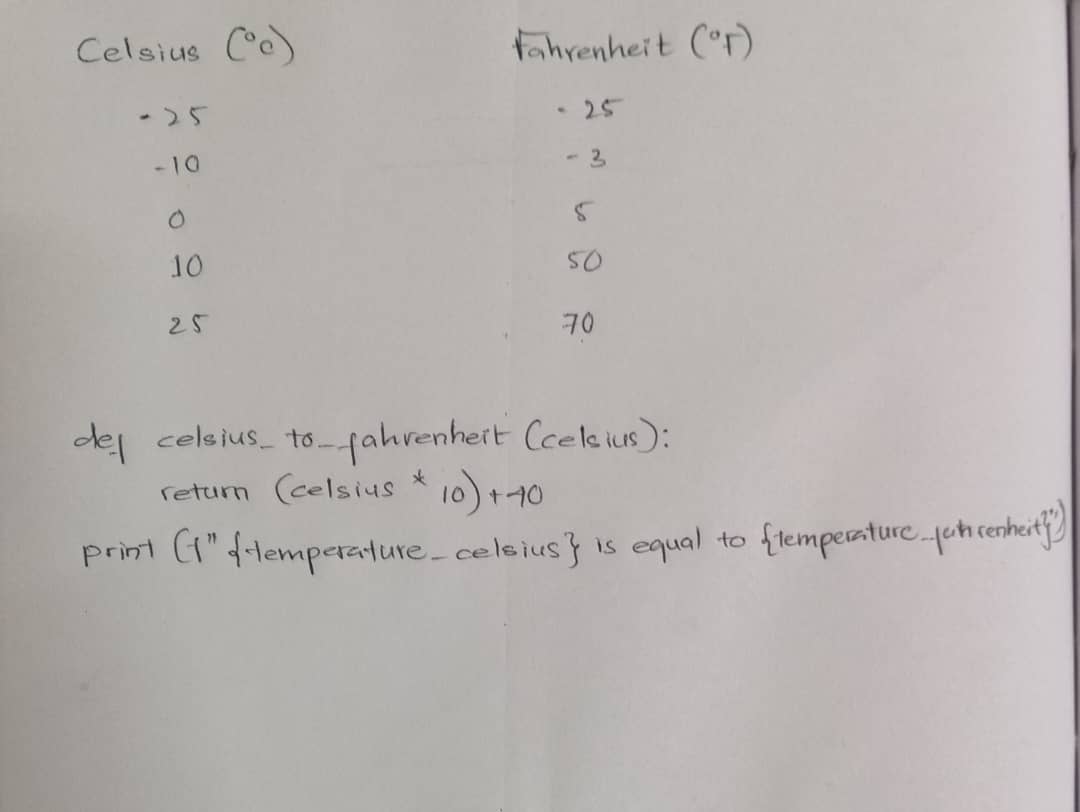 Celsius (°c) Fahrenheit (°F)
-25 -25
-10 -3
0 5
10 50
25 70
def celsius_to_fahrenheit (celsius):
return (celsius * 10) + 40
print (f"{temperature_celsius} is equal to {temperature_fahrenheit}")